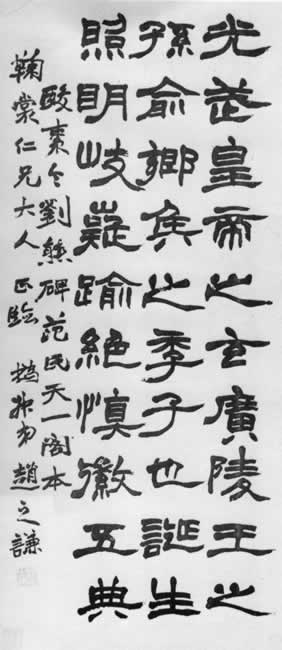 光武皇帝之玄廣陵王之
孫俞鄉侯之季子也誕生
照明岐嶷踰絕慎徽五典
酸棗令劉熊碑范氏天一閣本
鞠裳仁兄大人正臨 撝叔弟趙之謙